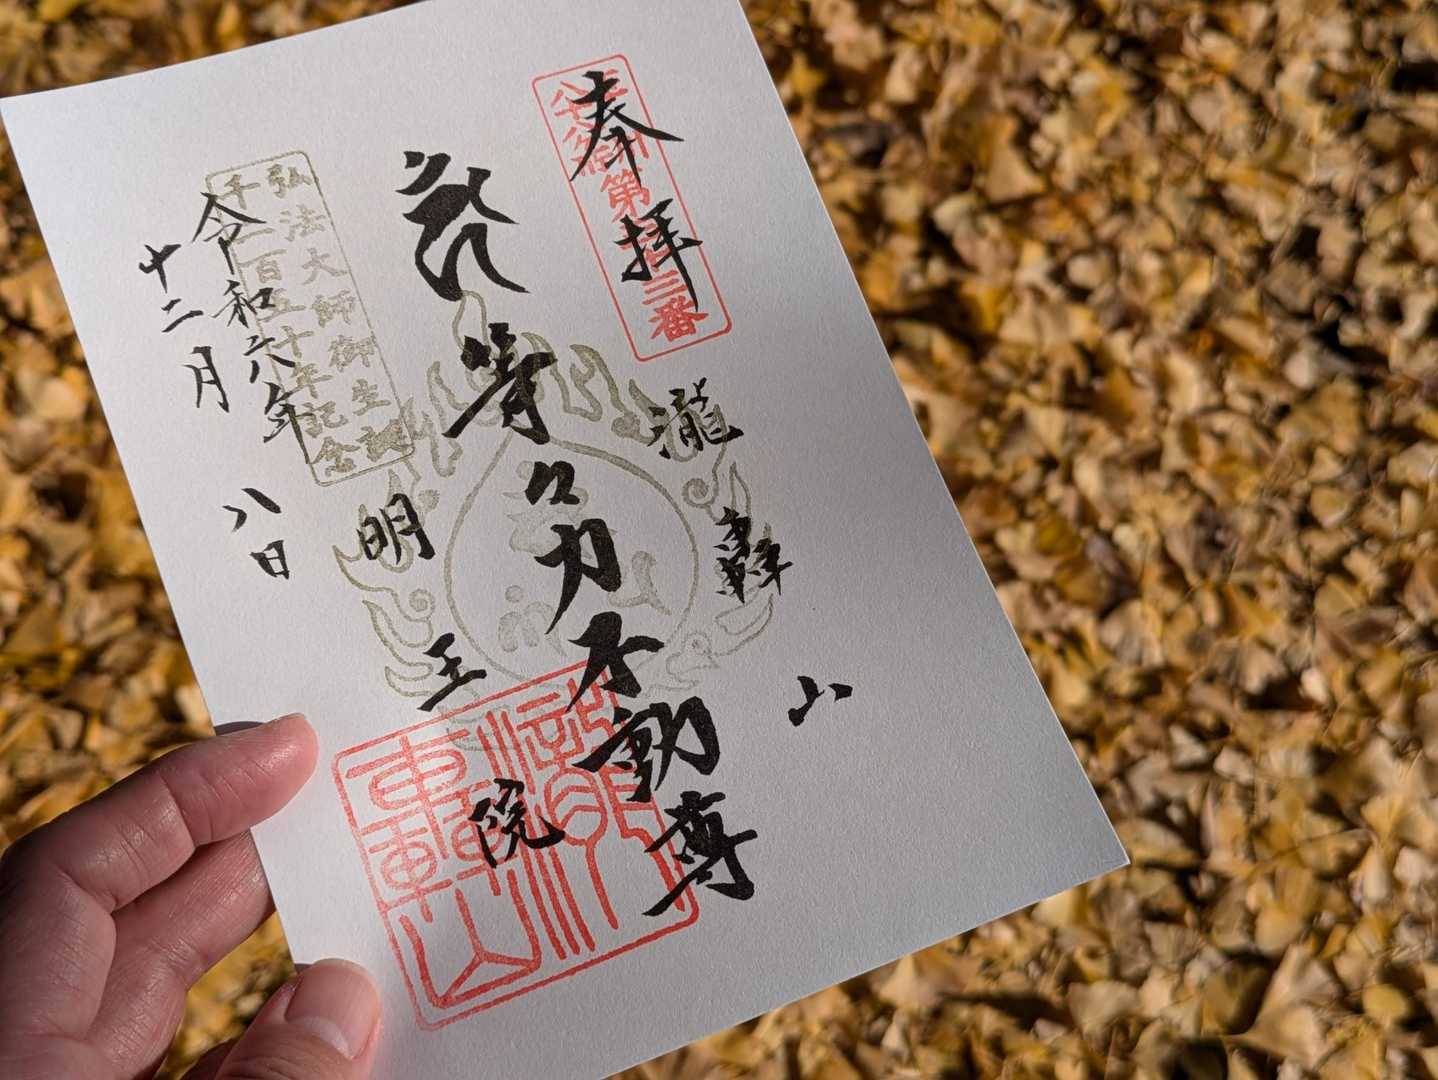 奉拝
八十八ヶ所第 三番
瀧轟山
等々力不動尊
明王院
弘法大師御生誕
千二百五十年記念
令和六年
十二月八日
瀧轟山